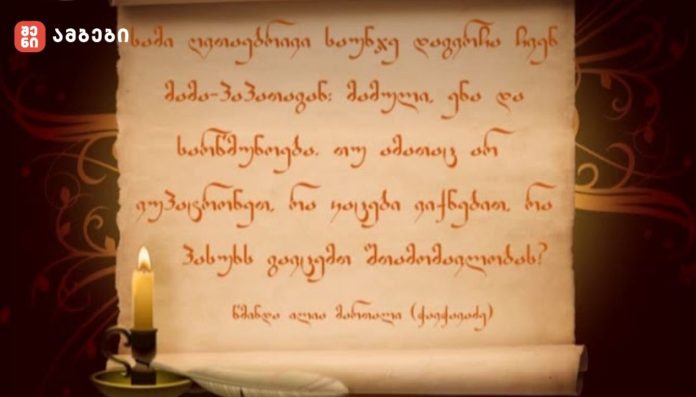 შენი ამბები
სამი ღვთაებრივი საუნჯე დაგვრჩა ჩვენ
მამა-პაპათაგან: მამული, ენა და
სარწმუნოება. თუ ამათაც არ
ვუპატრონეთ, რა კაცები ვიქნებით, რა
პასუხს გავცემთ შთამომავლობას?
წმინდა ილია მართალი (ჭავჭავაძე)